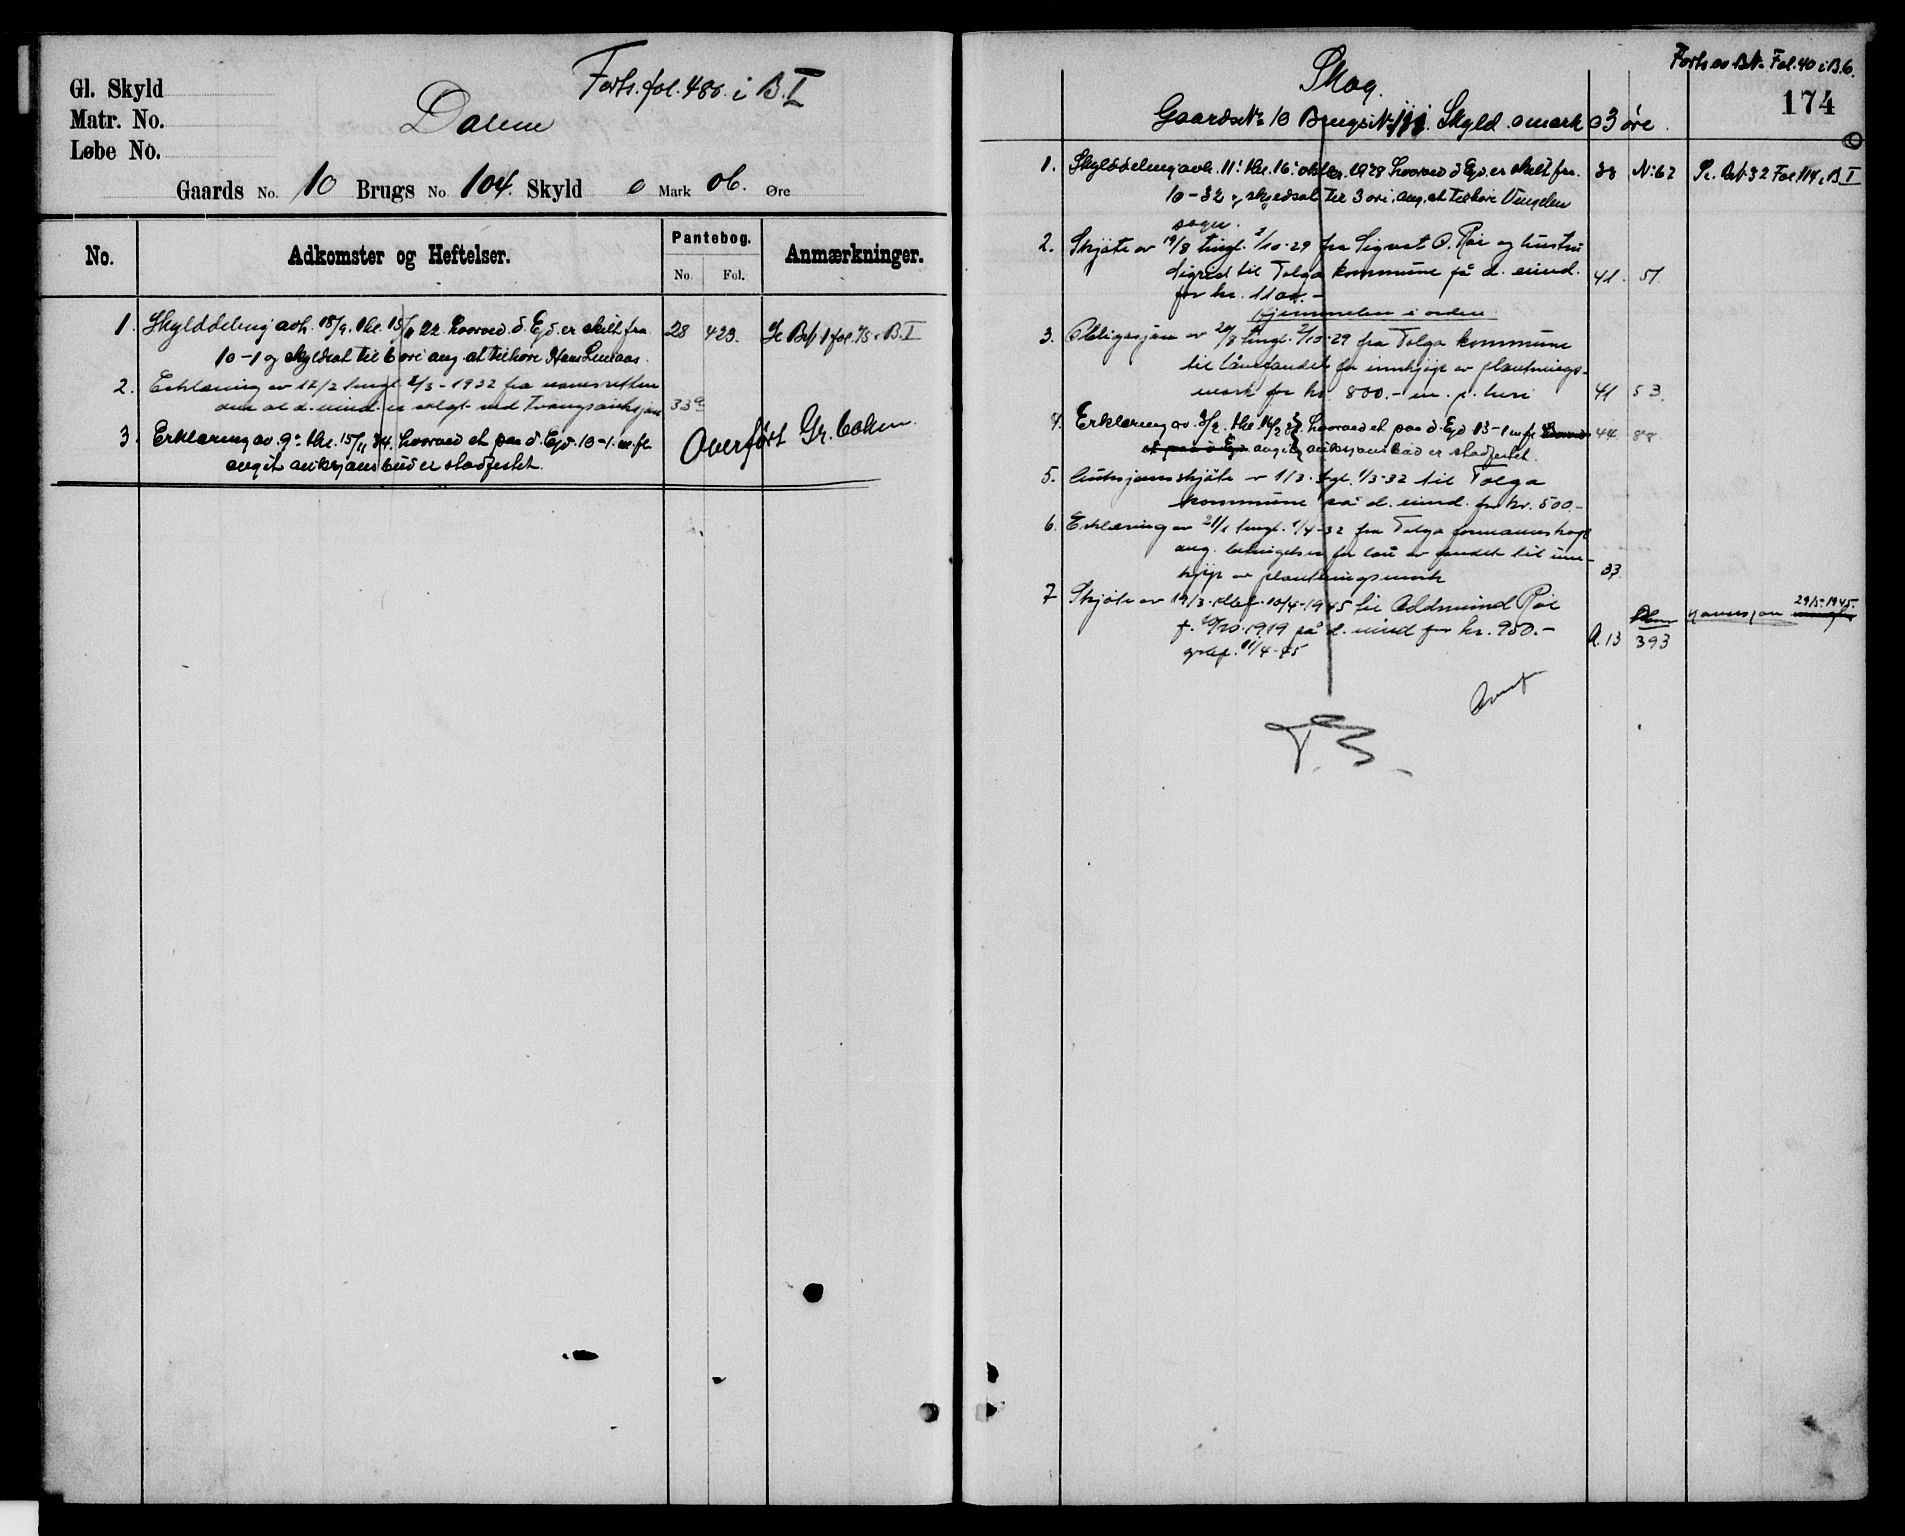 Forts. fol. 486 i B. I
Gl. Skyld
Matr. No.
Løbe No.
Dalen
Gaards No. 10 Brugs No. 104. Skyld 0 Mark 06. Øre
No. Adkomster og Heftelser. Pantebog. No. Fol. Anmærkninger.
1. Skylddeling avh. 18/9. thl. 15/11 22. hvorved d. Ejd. er skilt fra 28 423. Se Bet. 1 fol. 75 i B. I
10-1 og skyldsat til 6 øre ang. at tilhøre Hans
2. Erklæring av 12/2 tingl. 2/3-1932 fra namsretten
om at d. eiend. er solgt ved Tvangsauksjon 33
3. Erklæring av. 9. thl. 15/11 34. hvorved et paa d. Ejd. 10-1. m. fl.
angit auksjonsbud er stadfestet.
Overført Gr.
Forts. av Bl. Fol. 40 i B. 6.
174
Skog.
Gaards No 10 Brugs No 111. Skyld 0 mark 03 øre.
1. Skylddeling avh. 11. thl. 16. oktbr. 1928 hvorved d. Ejd. er skilt fra 38 No 62 Se Bet. 32 Fol 114 i B I
10-32 og skyldsat til 3 øre, ang. at tilhøre Vingelen
sogn.
2. Skjøte av 19/8 tingl. 2/10-29 fra Sigvat O. Røe og hustru
Sigrid til Tolga kommune på d. eiend. 41. 51.
for kr. 1100.-
Hjemmelen i orden.
3. Obligasjon av 20/8 tingl. 2/10-29 fra Tolga kommune
til lånefondet for innkjøp av plantnings-
mark for kr. 800.- m. p. 41 53.
4. Erklæring av. 8/2. thl. 16/2 hvorved et paa d. Ejd 13-1 m. fl. 44 88.
et paa d. Ejd angit auksjonsbud er stadfestet.
5. Auksjonsskjøte av 1/3 tgl. 1/3-32 til Tolga
kommune på d. eiend. for kr. 500.-
6. Erklæring av 21/1 tingl. 1/4-32 fra Tolga formannskap
ang. betingelser for lån av fondet til inn-
kjøp av plantningsmark 33.
7 Skjøte av 19/3. dbf. 10/4-1945 til Oddmund Røe
f. 20/10.1919 på d. eiend for kr. 950.- A. 13 393
11/4-45
konsesjon 29/5-1945.